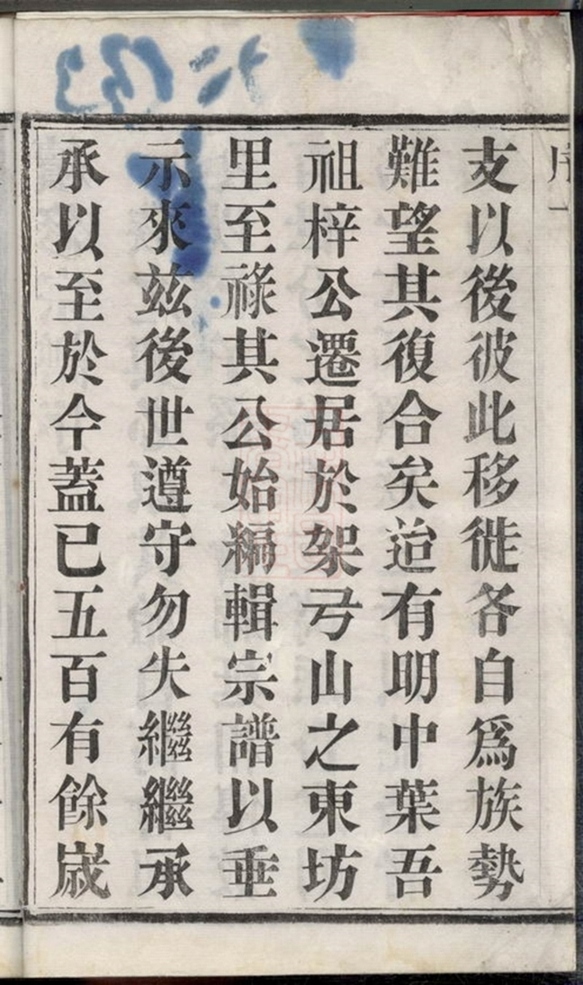 序一
支以後彼此移徙各自爲族勢
難望其復合矣迨有明中葉吾
祖梓公遷居於架弓山之東坊
里至祿其公始編輯宗譜以垂
示來兹後世遵守勿失繼繼承
承以至於今蓋已五百有餘嵗